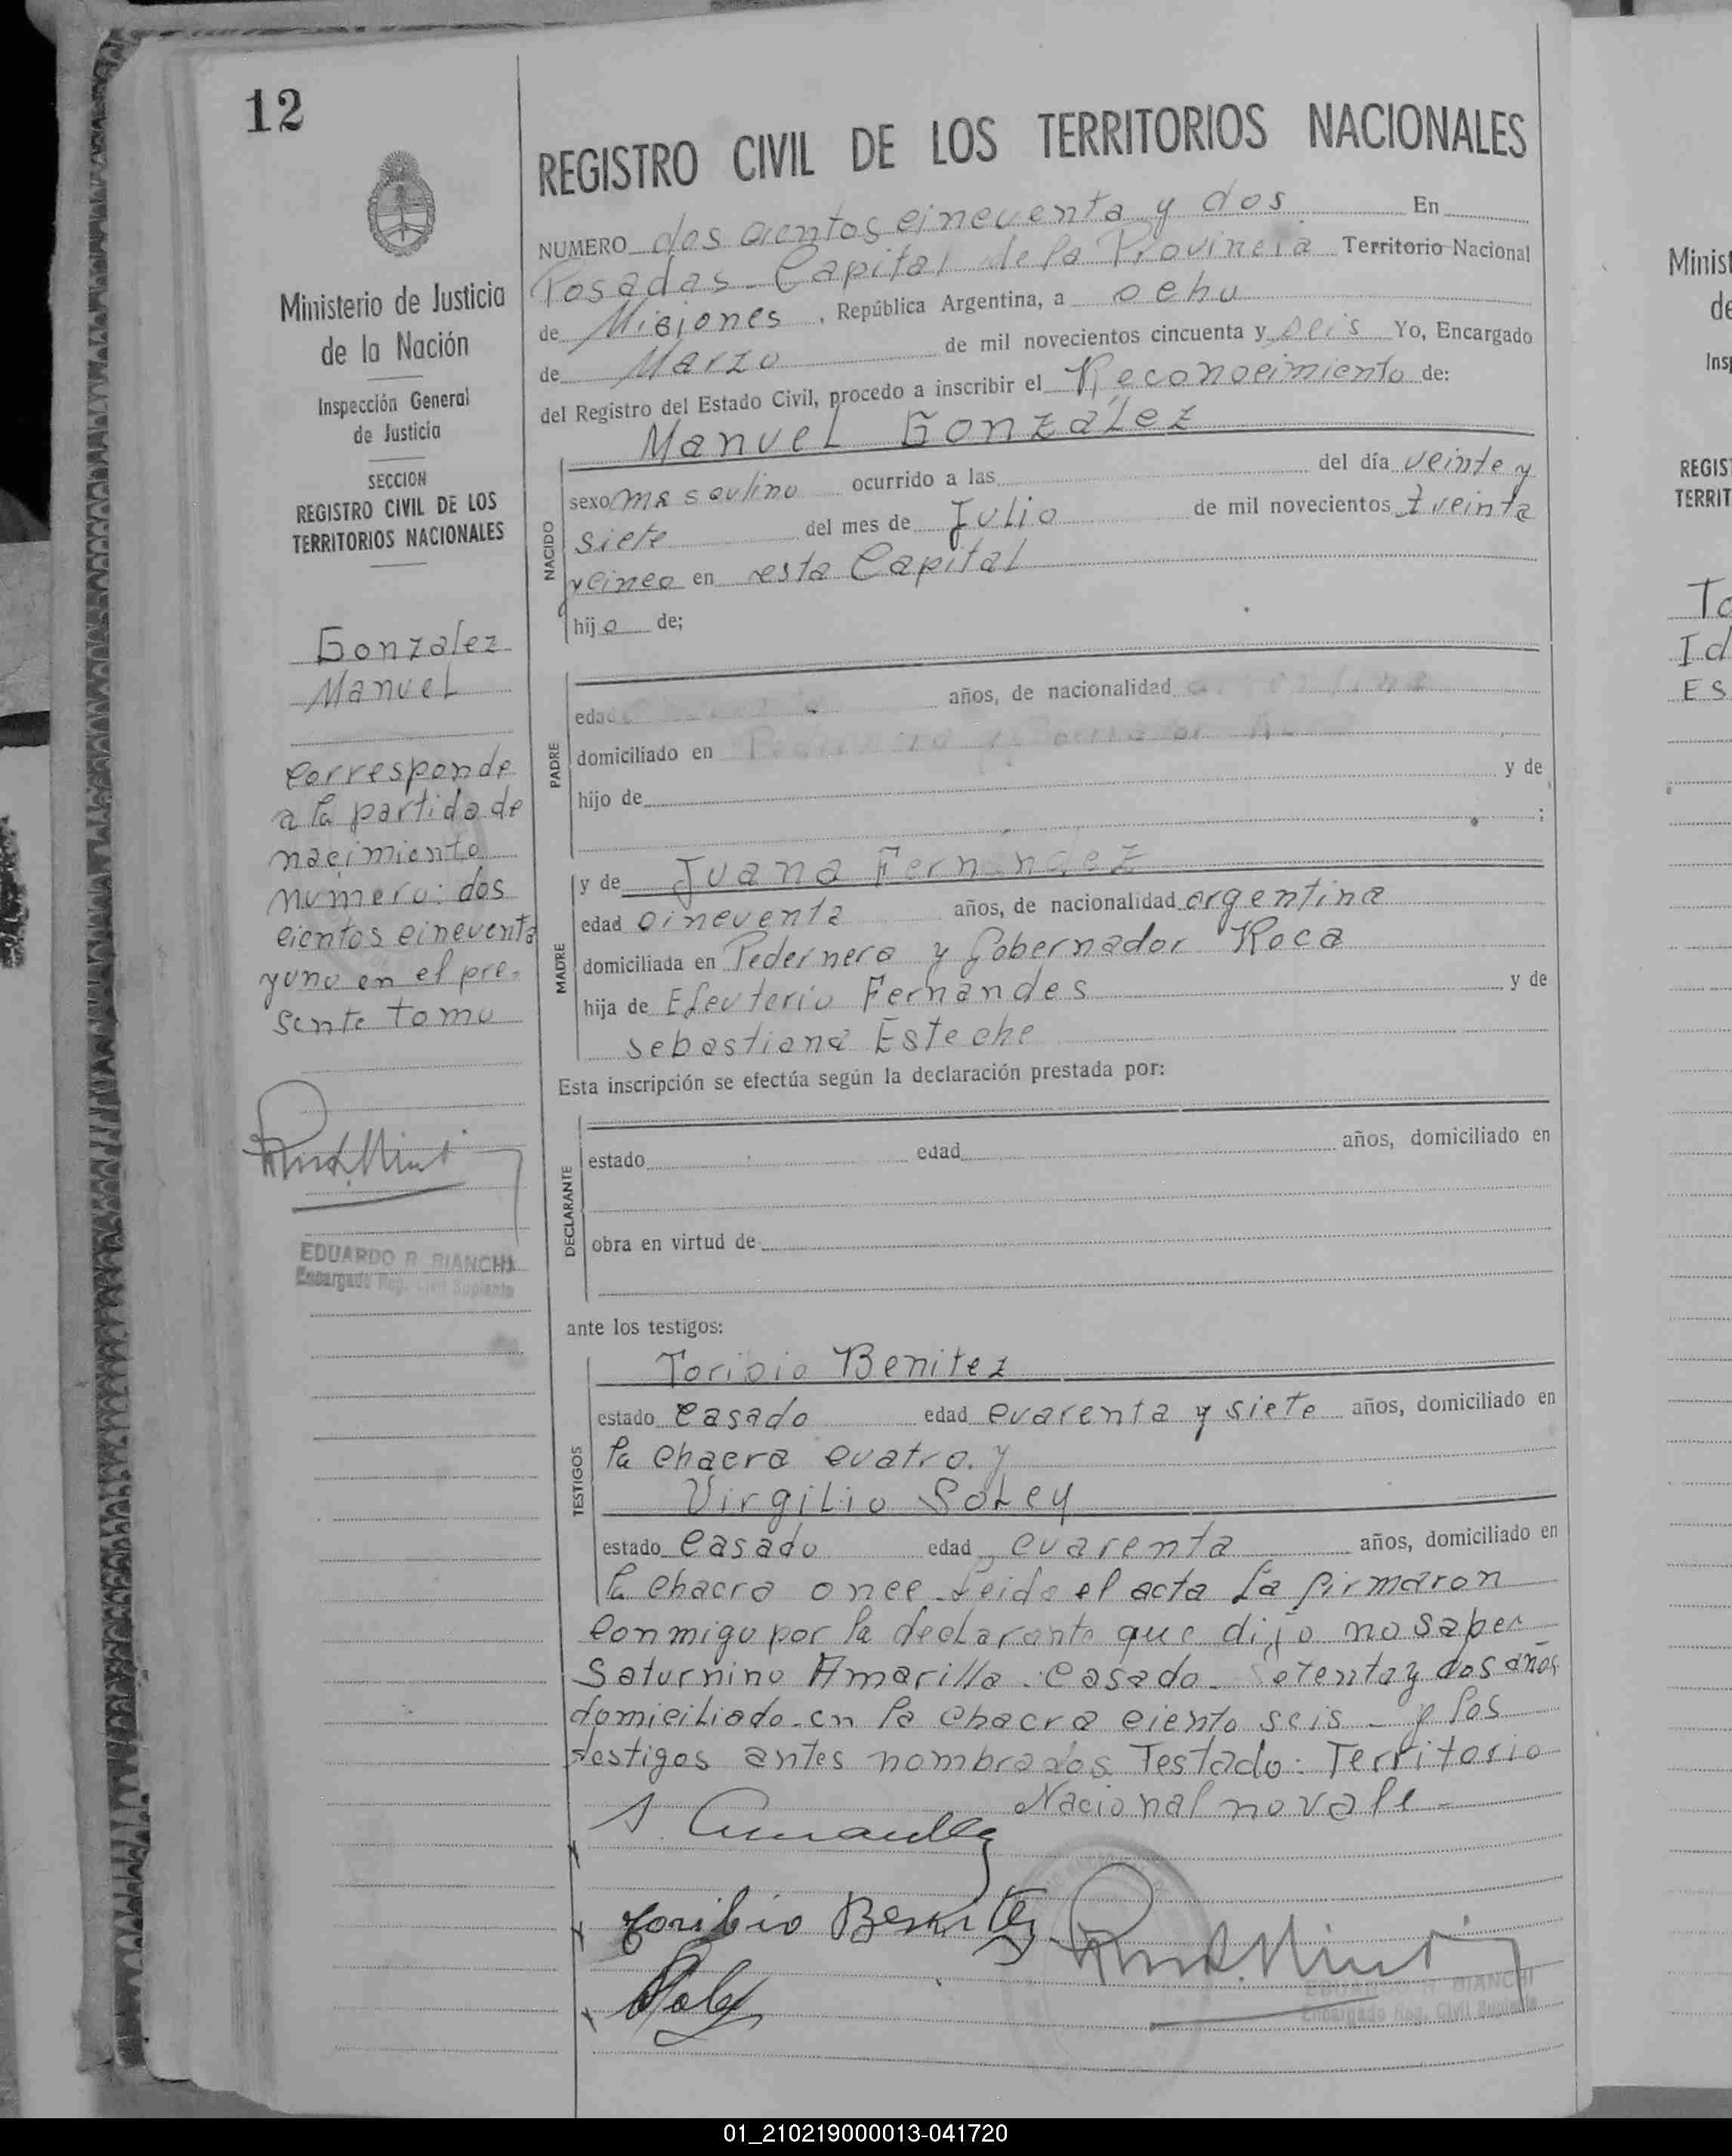 12
REGISTRO CIVIL DE LOS TERRITORIOS NACIONALES
Ministerio de Justicia
de la Nación
Inspección General
de Justicia
SECCION
REGISTRO CIVIL DE LOS
TERRITORIOS NACIONALES
Gonzalez
Manuel
Corresponde
a la partida de
nacimiento
numero: dos
cientos cincuenta
y uno en el pre-
sente tomo
EDUARDO R. BIANCHI
Encargado Reg. Civil Suplente
NUMERO dos cientos cincuenta y dos En
Posadas - Capital de la Provincia Territorio Nacional
de Misiones, República Argentina, a ocho
de Marzo de mil novecientos cincuenta y seis Yo, Encargado
del Registro del Estado Civil, procedo a inscribir el Reconocimiento de:
Manuel González
NACIDO
sexo masculino ocurrido a las del día veinte y
siete del mes de Julio de mil novecientos treinta
y cinco en esta Capital
hijo de;
PADRE
edad años, de nacionalidad
domiciliado en
hijo de y de
;
MADRE
y de Juana Fernandez
edad cincuenta años, de nacionalidad argentina
domiciliada en Pedernera y Gobernador Roca
hija de Eleuterio Fernandes y de
Sebastiana Esteche
Esta inscripción se efectúa según la declaración prestada por:
DECLARANTE
estado edad años, domiciliado en
obra en virtud de
ante los testigos:
TESTIGOS
Toribio Benitez
estado Casado edad cuarenta y siete años, domiciliado en
la chacra cuatro. y
Virgilio Soley
estado Casado edad cuarenta años, domiciliado en
la chacra once. Leida el acta la firmaron
conmigo por la declarante que dijo no saber
Saturnino Amarilla. casado. Setenta y dos años
domiciliado en la chacra ciento seis - y los
testigos antes nombrados Testado: Territorio
Nacional no vale -
S. Amarilla
Toribio Benitez
Soley
EDUARDO R. BIANCHI
Encargado Reg. Civil Suplente
01_210219000013-041720